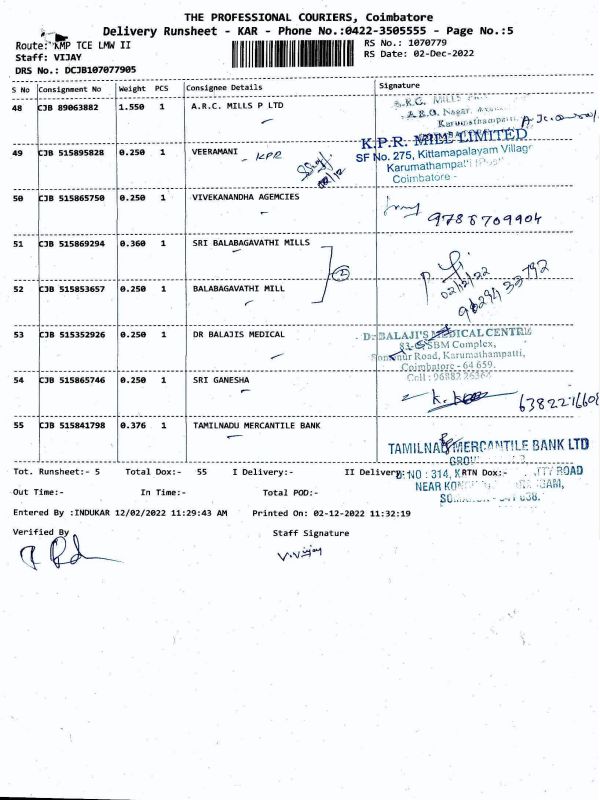 THE PROFESSIONAL COURIERS, Coimbatore
Delivery Runsheet - KAR - Phone No.:0422-3505555 - Page No.:5
Route: KMP TCE LMW II
RS No.: 1070779
Staff: VIJAY
RS Date: 02-Dec-2022
DRS No.: DCJB107077905
S No Consignment No Weight PCS Consignee Details Signature
48 CJB 89063882 1.550 1 A.R.C. MILLS P LTD
A.R.C. MILLS
Nagar,
Karumathampatti,
49 CJB 515895828 0.250 1 VEERAMANI - KPR
02/12
K.P.R. MILL LIMITED
SF No. 275, Kittampalayam Village
Karumathampatti (Post)
Coimbatore -
50 CJB 515865750 0.250 1 VIVEKANANDHA AGEMCIES
9786709904
51 CJB 515869294 0.360 1 SRI BALABAGAVATHI MILLS
2
02/12/22
52 CJB 515853657 0.250 1 BALABAGAVATHI MILL
53 CJB 515352926 0.250 1 DR BALAJIS MEDICAL
Dr BALAJI'S MEDICAL CENTRE
SBM Complex,
Somanur Road, Karumathampatti,
Coimbatore - 64 659.
54 CJB 515865746 0.250 1 SRI GANESHA
55 CJB 515841798 0.376 1 TAMILNADU MERCANTILE BANK
TAMILNAD MERCANTILE BANK LTD
Tot. Runsheet:- 5 Total Dox:- 55 I Delivery:- II Delivery: RTN Dox:-
NO : 314, K ROAD
NEAR
Out Time:- In Time:- Total POD:-
Entered By :INDUKAR 12/02/2022 11:29:43 AM Printed On: 02-12-2022 11:32:19
Verified By Staff Signature
V.Vijay